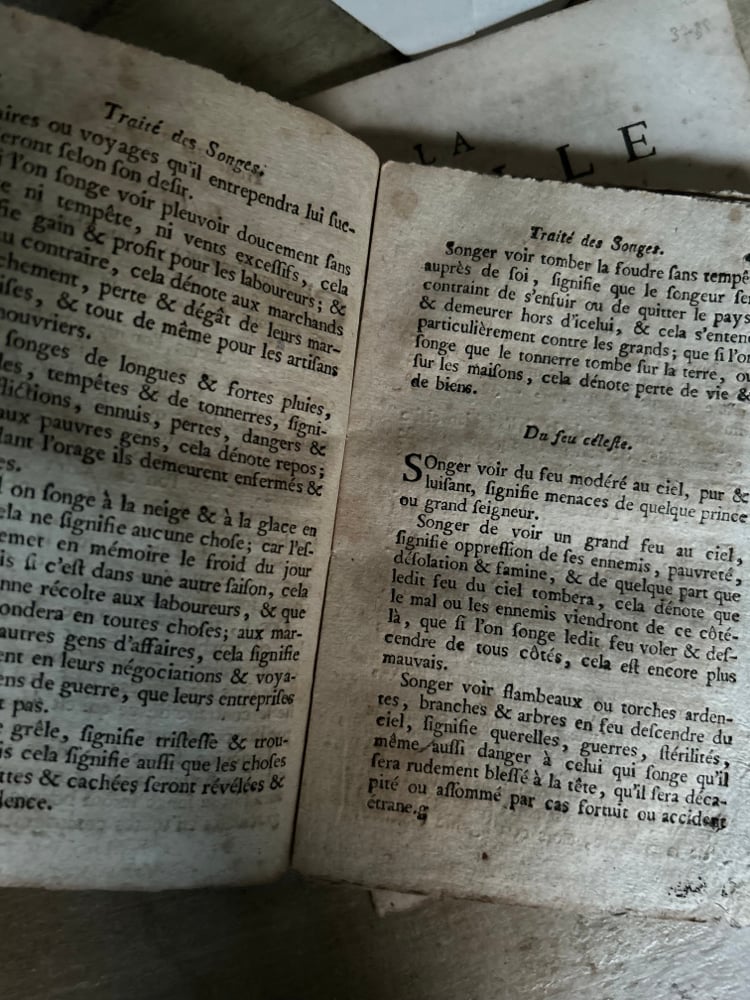 37-38
LA
LE
Traité des Songes.
aires ou voyages qu'il entreprendra lui ſuc-
eront ſelon ſon deſir.
i l'on ſonge voir pleuvoir doucement ſans
e ni tempête, ni vents exceſſifs, cela
fie gain & profit pour les laboureurs; &
u contraire, cela dénote aux marchands
chement, perte & dégât de leurs mar-
iſes, & tout de même pour les artiſans
nouvriers.
ſonges de longues & fortes pluies,
les, tempêtes & de tonnerres, ſigni-
flictions, ennuis, pertes, dangers &
aux pauvres gens, cela dénote repos;
dant l'orage ils demeurent enfermés &
es.
l on ſonge à la neige & à la glace en
ela ne ſignifie aucune choſe; car l'eſ-
emet en mémoire le froid du jour
is ſi c'eſt dans une autre ſaiſon, cela
nne récolte aux laboureurs, & que
ondera en toutes choſes; aux mar-
autres gens d'affaires, cela ſignifie
ent en leurs négociations & voya-
ens de guerre, que leurs entrepriſes
t pas.
e grêle, ſignifie triſteſſe & trou-
is cela ſignifie auſſi que les choſes
ttes & cachées ſeront révélées &
dence.
Traité des Songes.
Songer voir tomber la foudre ſans tempê
auprès de ſoi, ſignifie que le ſongeur ſer
contraint de s'enfuir ou de quitter le pays
& demeurer hors d'icelui, & cela s'entend
particulièrement contre les grands; que ſi l'on
ſonge que le tonnerre tombe ſur la terre, ou
ſur les maiſons, cela dénote perte de vie &
de biens.
Du feu céleſte.
SOnger voir du feu modéré au ciel, pur &
luiſant, ſignifie menaces de quelque prince
ou grand ſeigneur.
Songer de voir un grand feu au ciel,
ſignifie oppreſſion de ſes ennemis, pauvreté,
déſolation & famine, & de quelque part que
ledit feu du ciel tombera, cela dénote que
le mal ou les ennemis viendront de ce côté-
là, que ſi l'on ſonge ledit feu voler & deſ-
cendre de tous côtés, cela eſt encore plus
mauvais.
Songer voir flambeaux ou torches arden-
tes, branches & arbres en feu deſcendre du
ciel, ſignifie querelles, guerres, ſtérilités,
même auſſi danger à celui qui ſonge qu'il
ſera rudement bleſſé à la tête, qu'il ſera déca-
pité ou aſſommé par cas fortuit ou accident
étrange.